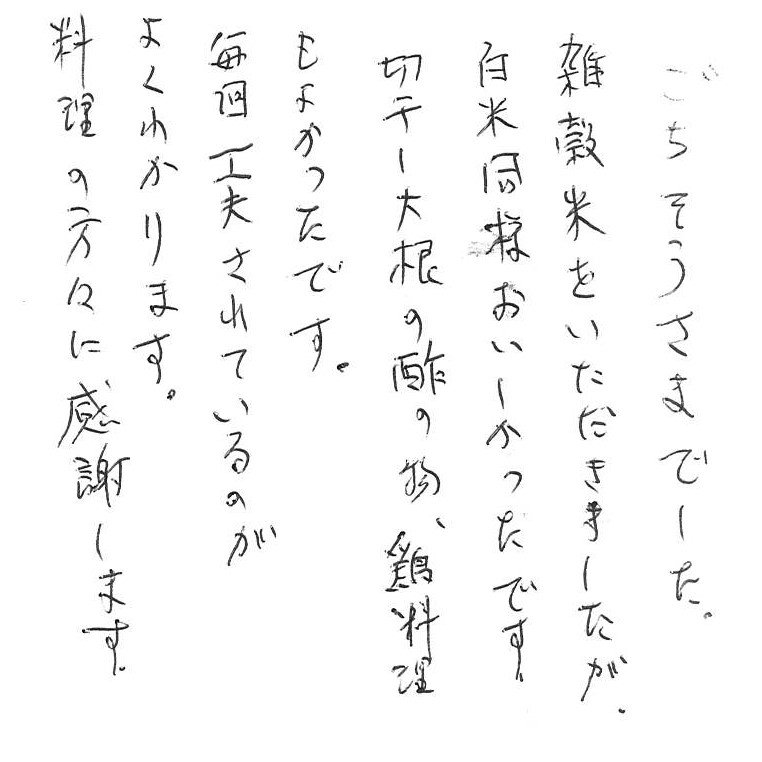 ごちそうさまでした。
雑穀米をいただきましたが、
白米同様おいしかったです。
切干し大根の酢の物、鶏料理
もよかったです。
毎回工夫されているのが
よくわかります。
料理の方々に感謝します。